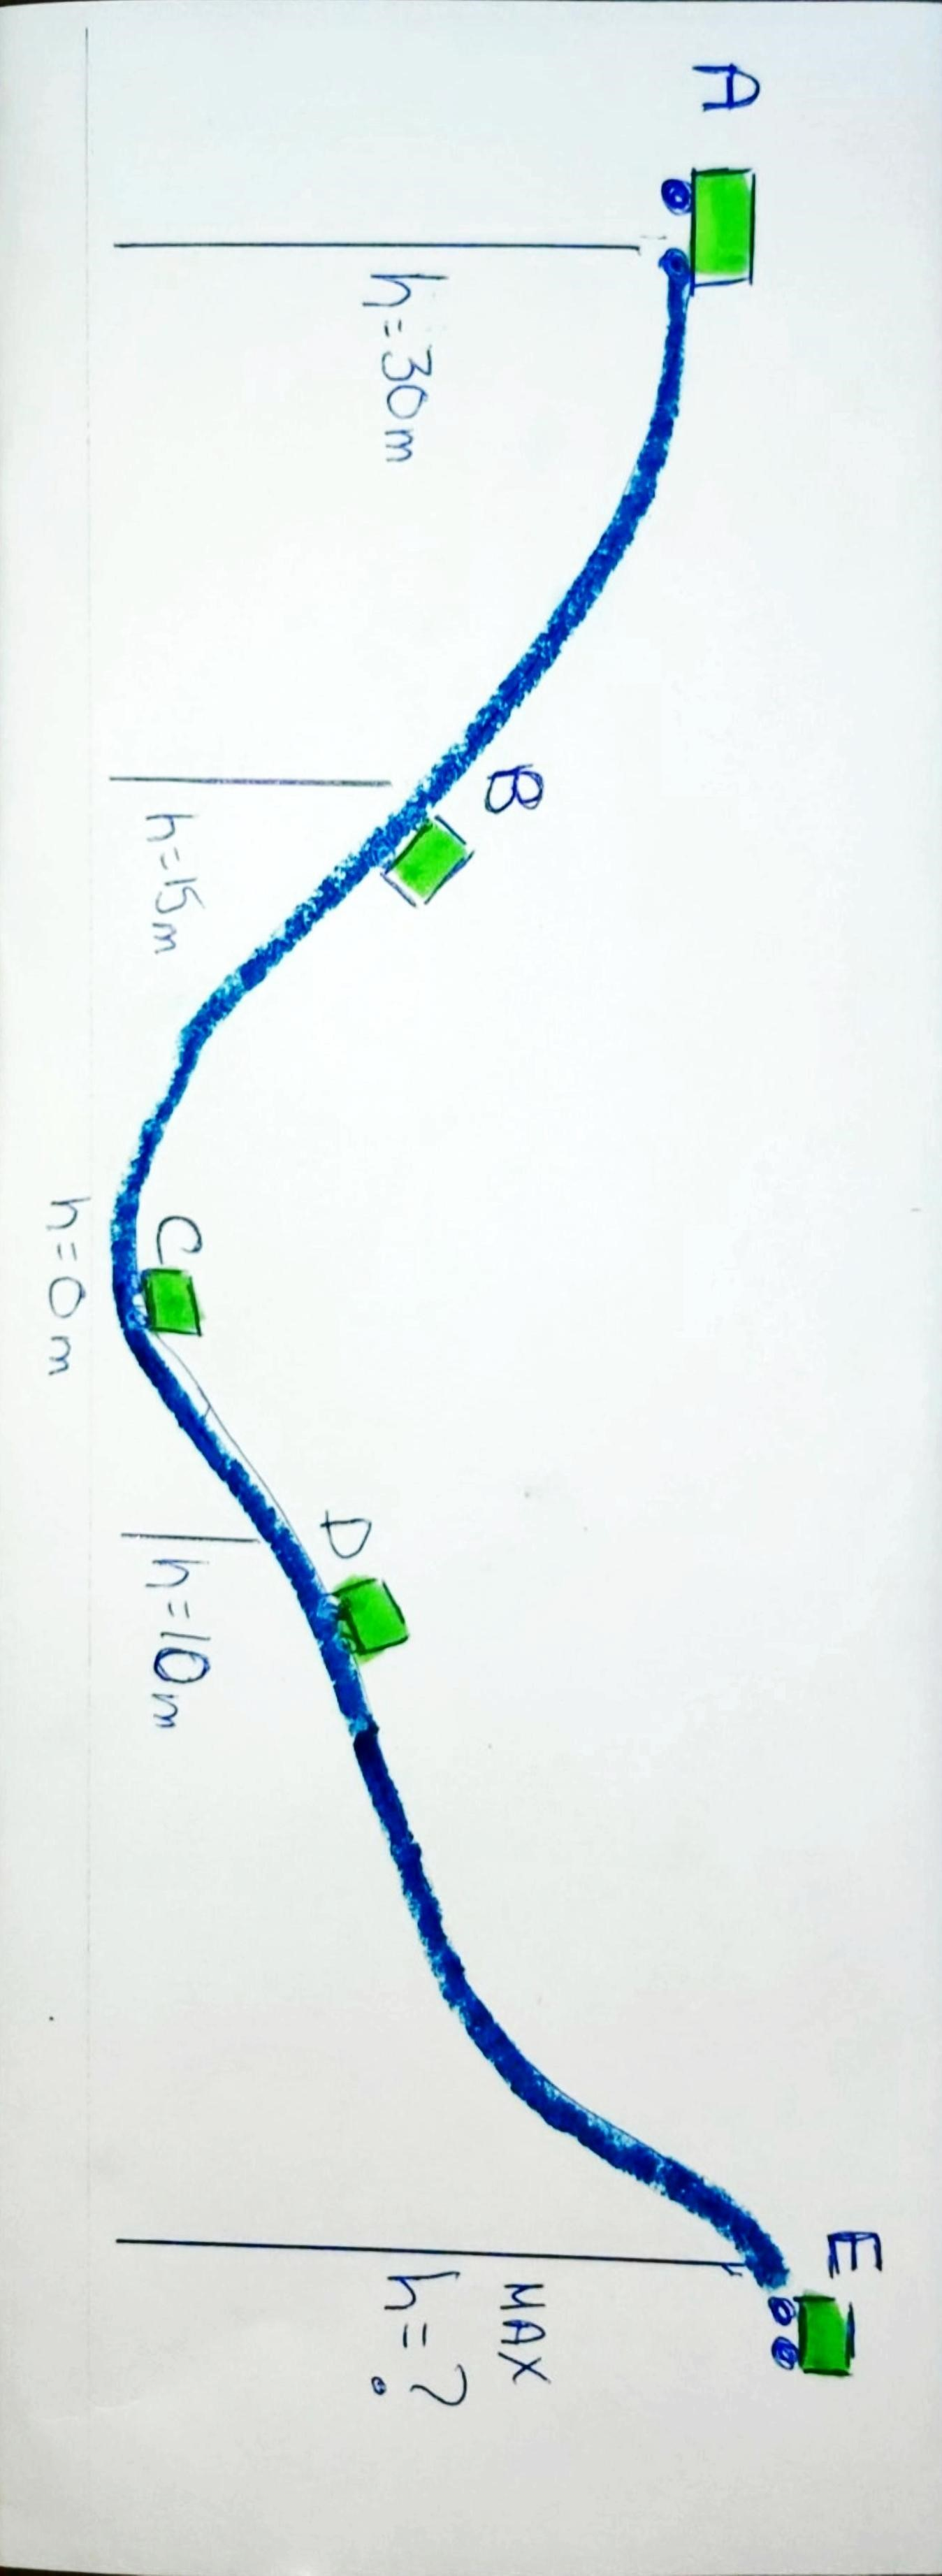 A
h=30m
B
h=15m
C
h=0m
D
h=10m
E
MAX
h=?